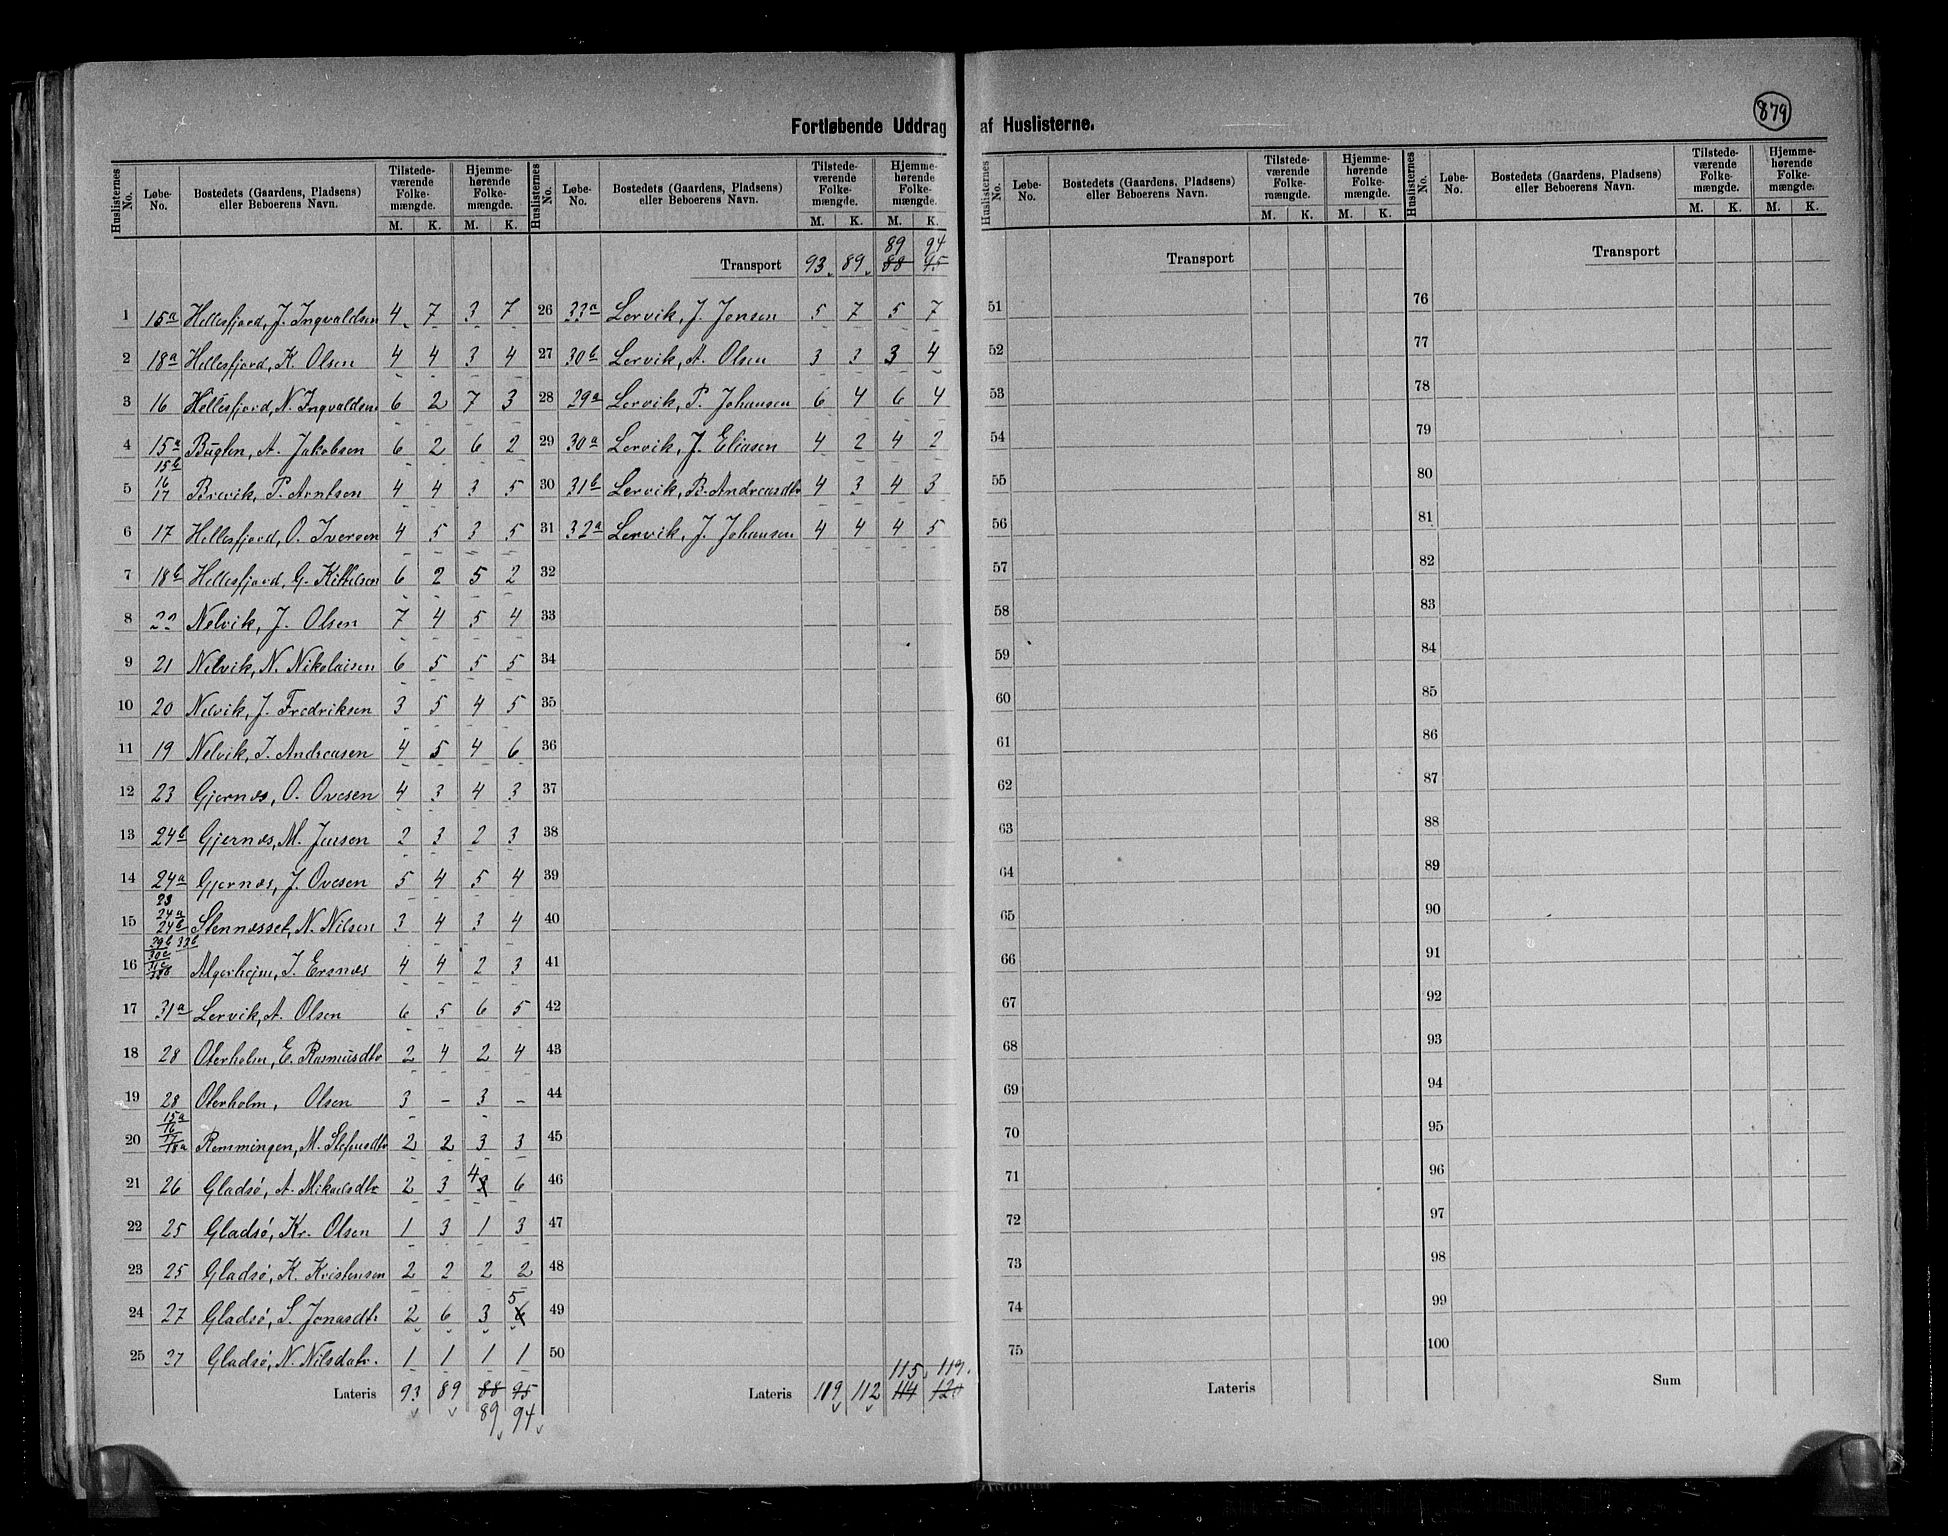 879
Fortløbende Uddrag af Huslisterne.
Huslisternes No. Løbe-No. Bostedets (Gaardens, Pladsens) eller Beboerens Navn. Tilstede-værende Folke-mængde. M. K. Hjemme-hørende Folke-mængde. M. K.
Huslisternes No. Løbe-No. Bostedets (Gaardens, Pladsens) eller Beboerens Navn. Tilstede-værende Folke-mængde. M. K. Hjemme-hørende Folke-mængde. M. K.
Huslisternes No. Løbe-No. Bostedets (Gaardens, Pladsens) eller Beboerens Navn. Tilstede-værende Folke-mængde. M. K. Hjemme-hørende Folke-mængde. M. K.
Huslisternes No. Løbe-No. Bostedets (Gaardens, Pladsens) eller Beboerens Navn. Tilstede-værende Folke-mængde. M. K. Hjemme-hørende Folke-mængde. M. K.
1 15a Hellesfjord, J. Ingvaldsen 4 7 3 7
2 18a Hellesfjord, K. Olsen 4 4 3 4
3 16 Hellesfjord, N. Ingvaldsen 6 2 7 3
4 15a Buglen, A. Jakobsen 6 2 6 2
5 15b 16 17 Brevik, P. Arntsen 4 4 3 5
6 17 Hellesfjord, O. Iversen 4 5 3 5
7 18b Hellesfjord, G. Kittelsen 6 2 5 2
8 22 Nelvik, J. Olsen 7 4 5 4
9 21 Nelvik, N. Nikolaisen 6 5 5 5
10 20 Nelvik, J. Fredriksen 3 5 4 5
11 19 Nelvik, I. Andreasen 4 5 4 6
12 23 Gjernæs, O. Ovesen 4 3 4 3
13 24b Gjernæs, M. Jensen 2 3 2 3
14 24a Gjernæs, J. Ovesen 5 4 5 4
15 23 24a 24b Stennæsset, N. Nilsen 3 4 3 4
16 Algerheim, I. Ersnæs 4 4 2 3
17 31a Lervik, A. Olsen 6 5 6 5
18 28 Oterholm, E. Rasmusdtr 2 4 2 4
19 28 Oterholm, Olsen 3 - 3 -
20 15a 16 17 18a Remmingen, M. Stefensdtr 2 2 3 3
21 26 Gladsø, A. Mikaelsdtr 2 3 4 3 6
22 25 Gladsø, Kr. Olsen 1 3 1 3
23 25 Gladsø, K. Kristensen 2 2 2 2
24 27 Gladsø, S. Jonasdtr 2 6 3 5 6
25 27 Gladsø, N. Nilsdatr. 1 1 1 1
Lateris 93 89 88 95
89 94
89 94
Transport 93 89 88 95
26 33a Lervik, J. Jensen 5 7 5 7
27 30b Lervik, A. Olsen 3 3 3 4
28 29a Lervik, P. Johansen 6 4 6 4
29 30a Lervik, J. Eliasen 4 2 4 2
30 31b Lervik, B. Andreasdtr 4 3 4 3
31 32a Lervik, J. Johansen 4 4 4 5
32
33
34
35
36
37
38
39
40
41
42
43
44
45
46
47
48
49
50
115 119.
Lateris 119 112 114 120
Transport
51
52
53
54
55
56
57
58
59
60
61
62
63
64
65
66
67
68
69
70
71
72
73
74
75
Lateris
Transport
76
77
78
79
80
81
82
83
84
85
86
87
88
89
90
91
92
93
94
95
96
97
98
99
100
Sum